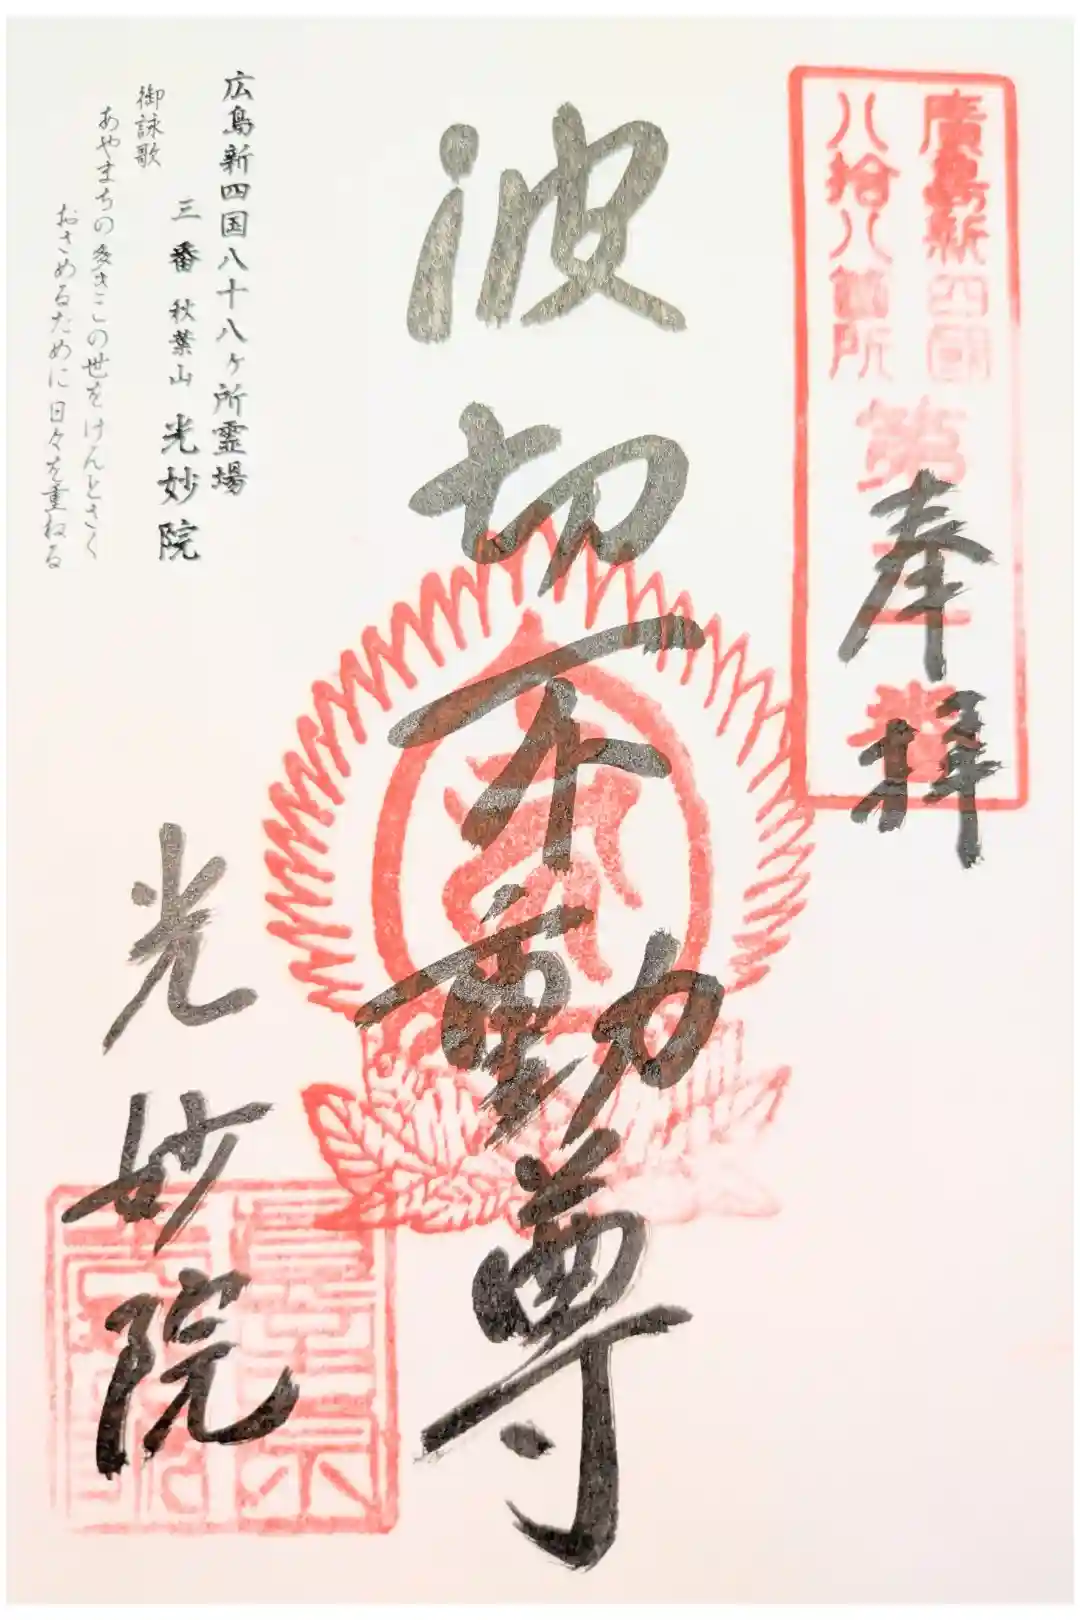 廣島新四國
八拾八箇所
第三番
奉拝
波切不動尊
光妙院
広島新四国八十八ヶ所霊場
三番 秋葉山 光妙院
御詠歌
あやまちの多きこの世をけんとさく
おさめるために日々を重ねる